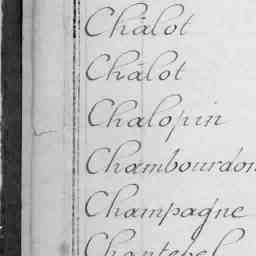 Châlot
Châlot
Chalopin
Chambourdon
Champagne
Chantebel